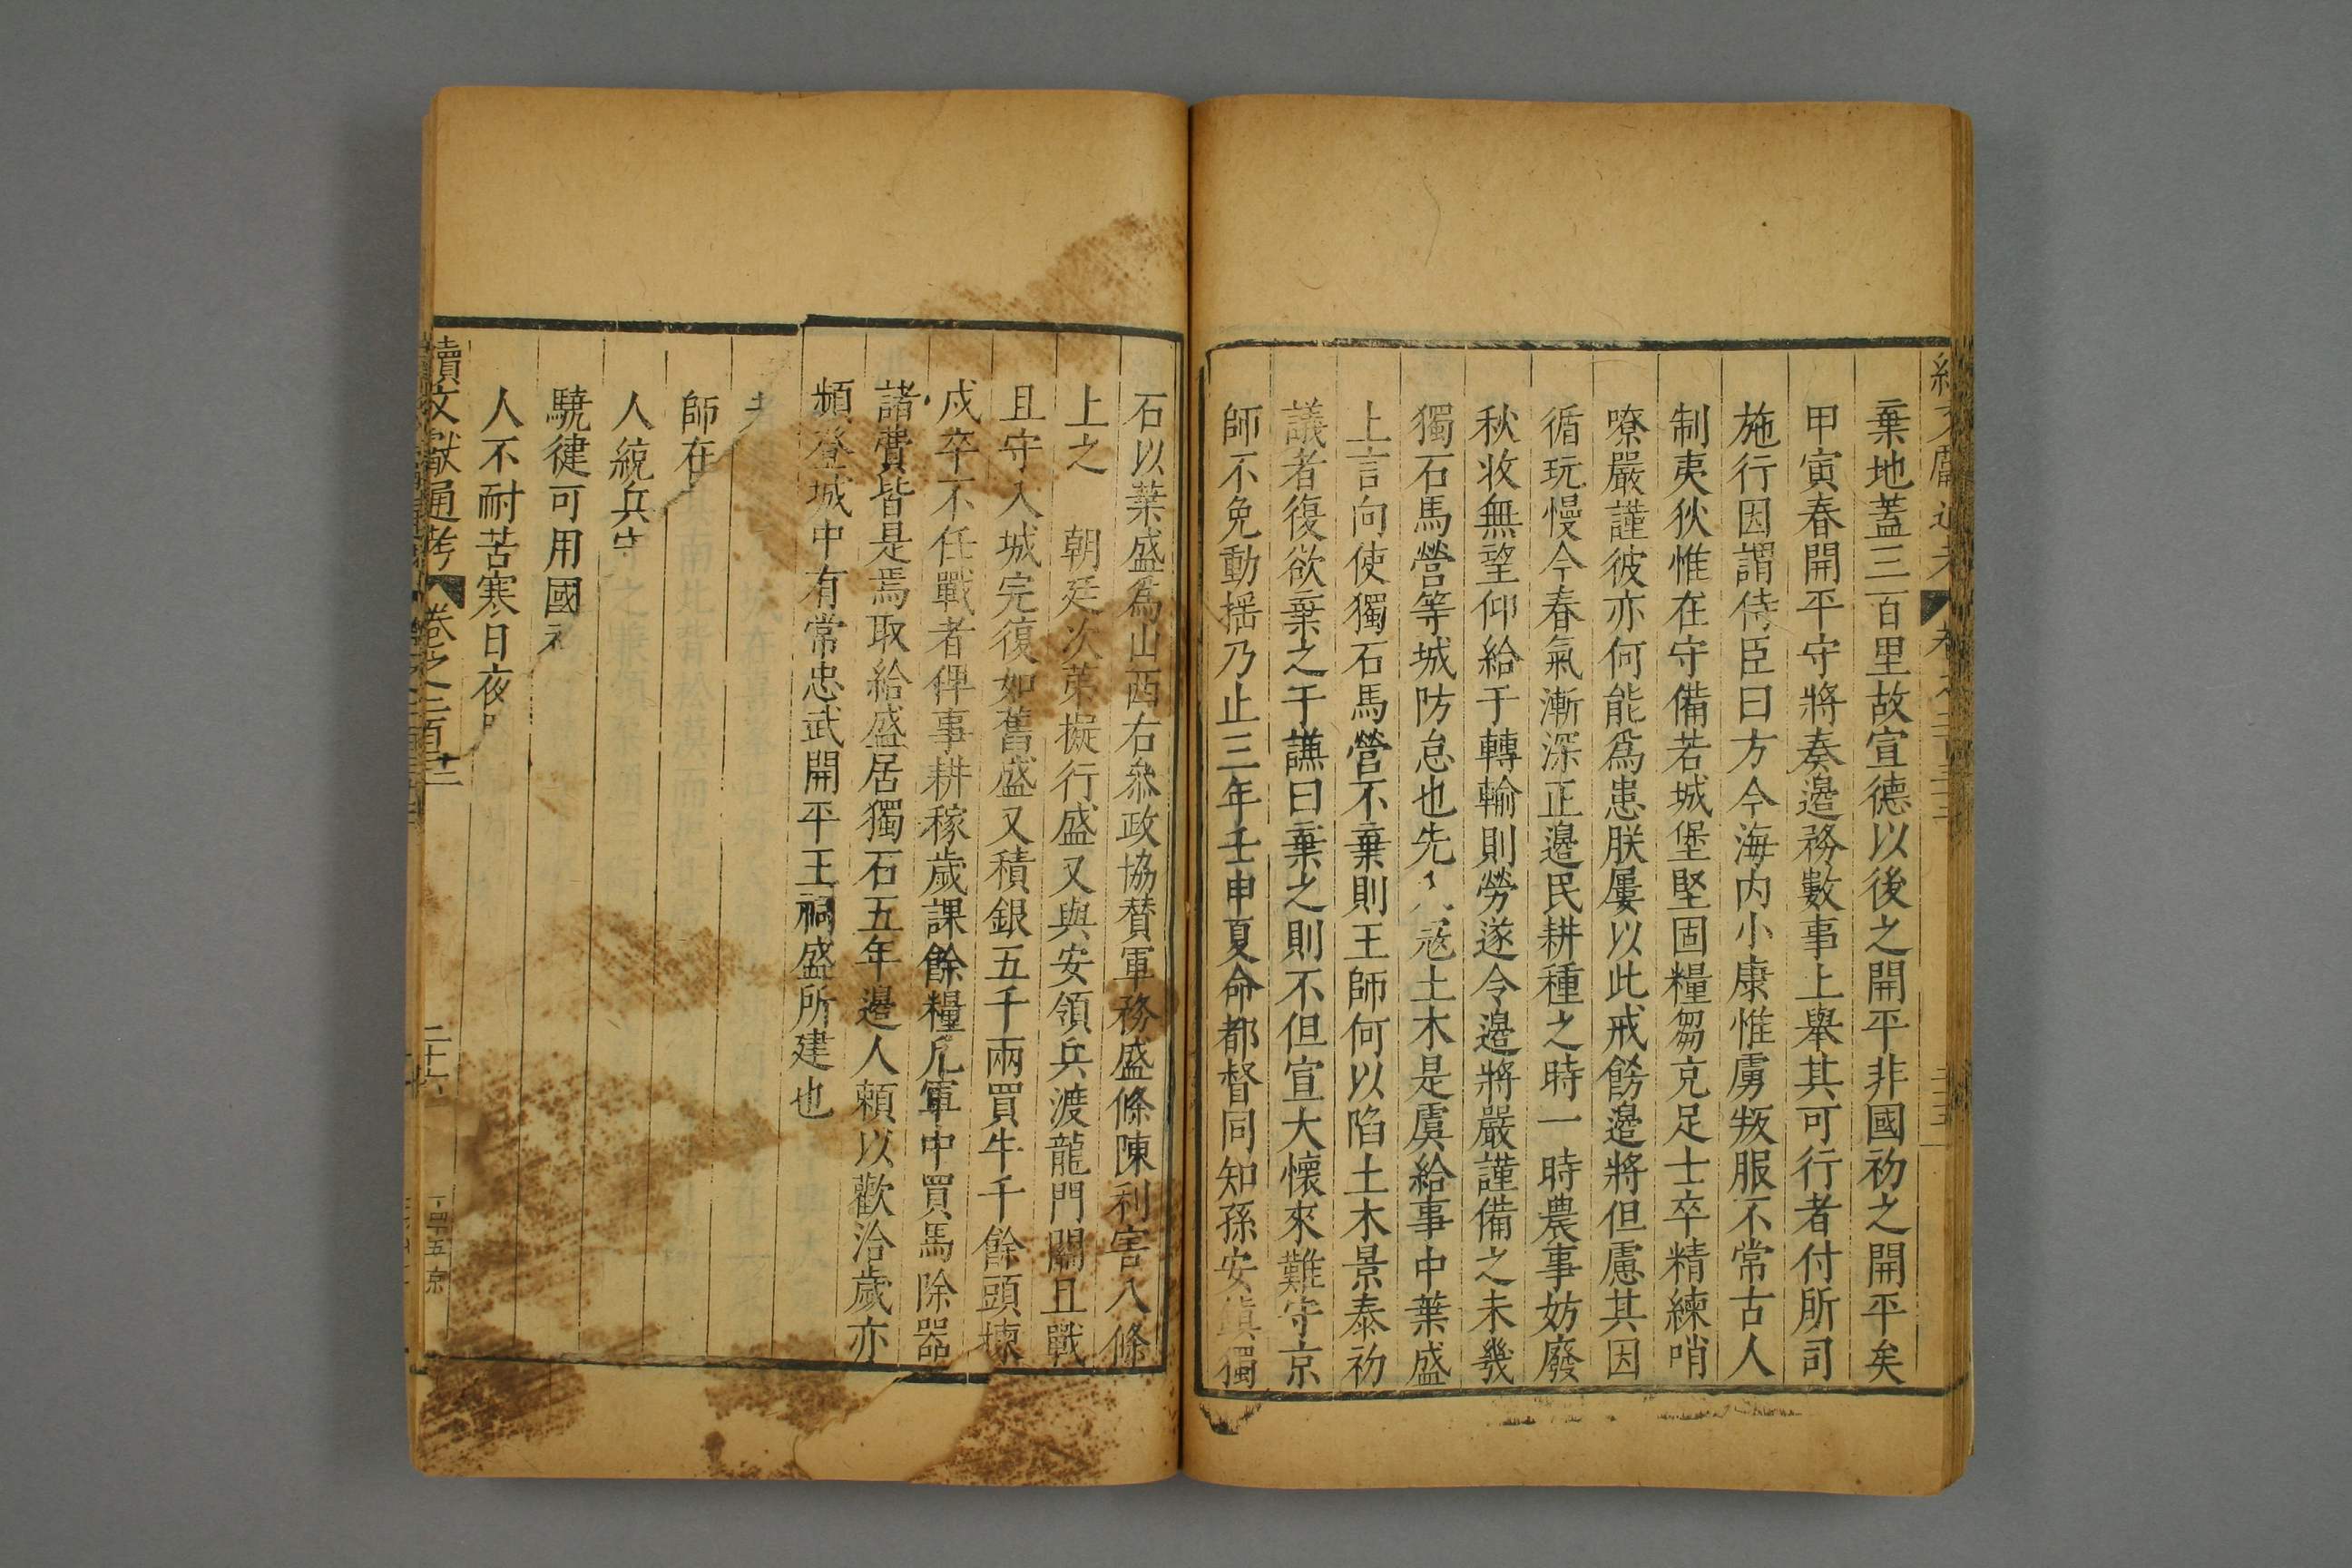 棄地蓋三百里故宣德以後之開平非國初之開平矣
甲寅春開平守將奏邊務數事上舉其可行者付所司
施行因謂侍臣曰方今海内小康惟虜叛服不常古人
制夷狄惟在守備若城堡堅固糧芻充足士卒精練哨
嘹嚴謹彼亦何能爲患朕屢以此戒餝邊將但慮其因
循玩慢今春氣漸深正邊民耕種之時一時農事妨廢
秋收無望仰給于轉輸則勞遂令邊將嚴謹備之未幾
獨石馬營等城防怠也先入寇土木是虞給事中葉盛
上言向使獨石馬營不棄則王師何以陷土木景泰初
議者復欲棄之于謙曰棄之則不但宣大懷來難守京
師不免動揺乃止三年壬申夏命都督同知孫安鎮獨
石以葉盛爲山西右叅政協賛軍務盛條陳利害八條
上之 朝廷次第擬行盛又與安領兵渡龍門關且戰
且守入城完復如舊盛又積銀五千兩買牛千餘頭揀
戍卒不任戰者俾事耕稼歲課餘糧凡軍中買馬除器
諸費皆是焉取給盛居獨石五年邊人頼以歡洽歲亦
頻登城中有常忠武開平王祠盛所建也
師在
人統兵守
驍健可用國
人不耐苦寒日夜
續文獻通考 卷之二百三十三
二十六